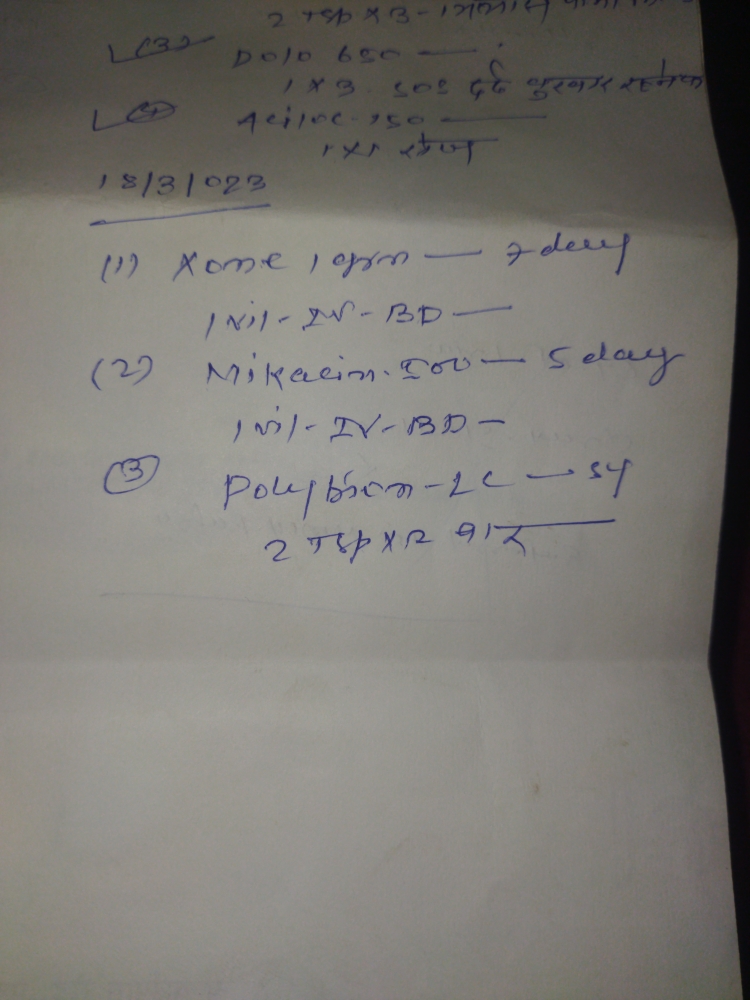 2 Tsp X 3 -
(3) Dolo 650 —
1 X 3 SOS दर्द बुखार
(4) Aciloc-150 —
1 X 1 रोज
18/3/023
(1) Xone 1 gm — 7 day
1 vil - IV - BD —
(2) Mikacin-500 — 5 day
1 vil - IV - BD —
(3) Polybion-LC — sy
2 Tsp X 2 बार